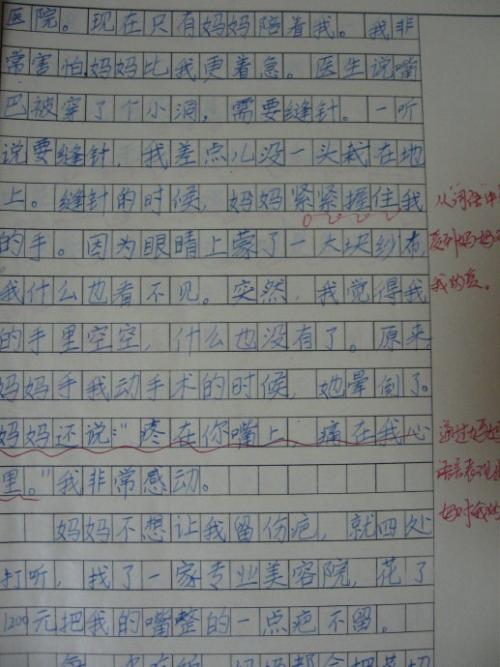 医院。现在只有妈妈陪着我。我非
常害怕妈妈比我更着急。医生说嘴
巴被穿了个小洞，需要缝针。一听
说要缝针，我差点儿没一头栽在地
上。缝针的时候，妈妈紧紧握住我
从词语中
的手。因为眼睛上蒙了一大块纱布，
我什么也看不见。突然，我觉得我
我的爱。
的手里空空，什么也没有了。原来
妈妈手我动手术的时候，她晕倒了。
妈妈还说：“疼在你嘴上，痛在我心
通过妈妈
里。”我非常感动。
语言表现
妈妈不想让我留伤疤，就四处
打听，找了一家专业美容院，花了
1200元把我的嘴整的一点疤不留。